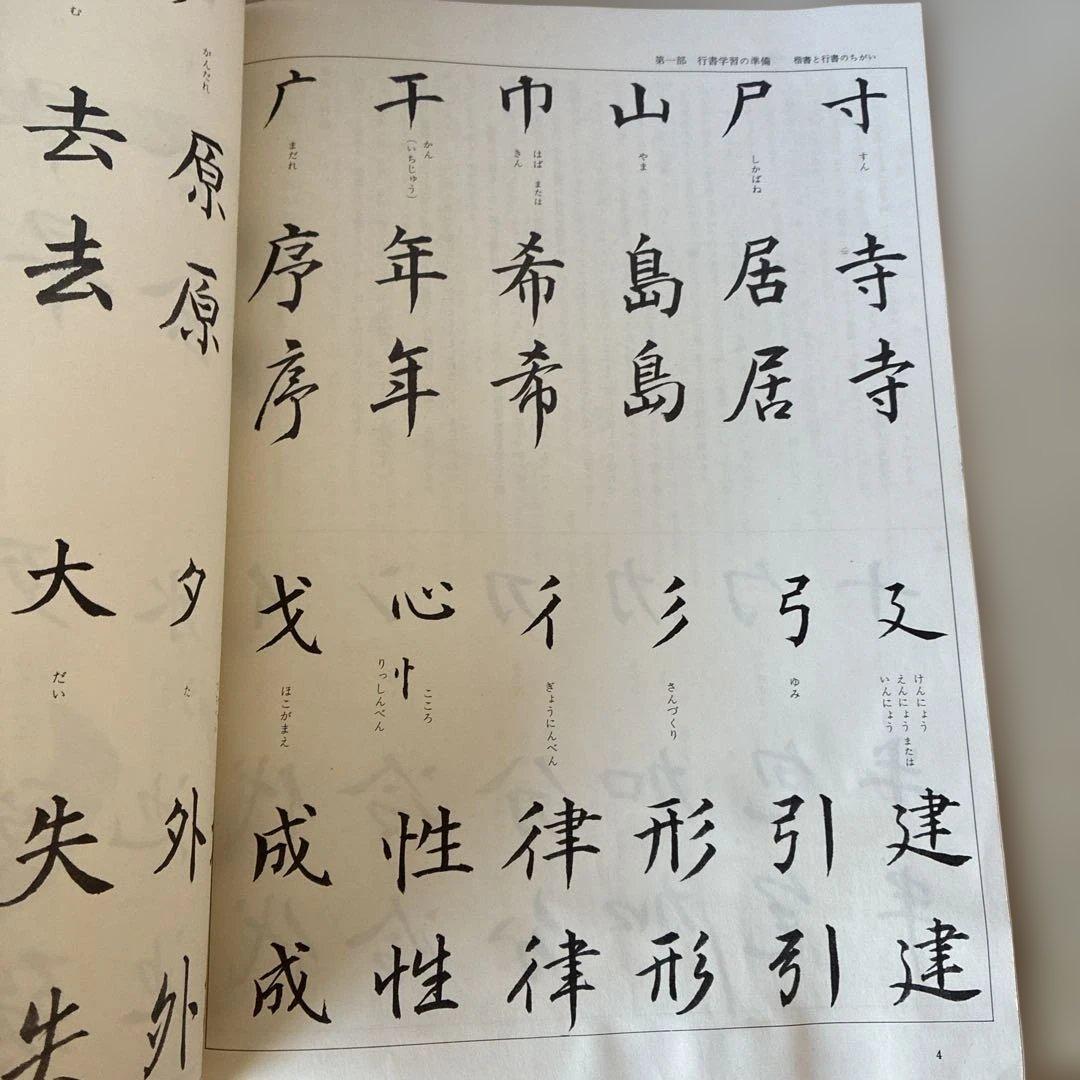 第一部　行書学習の準備　楷書と行書のちがい
寸
すん
寺
寺
尸
しかばね
居
居
山
やま
島
島
巾
はば または
きん
希
希
干
かん
(いちじゅう)
年
年
广
まだれ
序
序
廴
けんにょう
えんにょう または
いんにょう
建
建
弓
ゆみ
引
引
彡
さんづくり
形
形
彳
ぎょうにんべん
律
律
心
忄
こころ
りっしんべん
性
性
戈
ほこがまえ
成
成
4
かんだれ
原
原
む
去
去
夕
た
外
外
大
だい
失
失